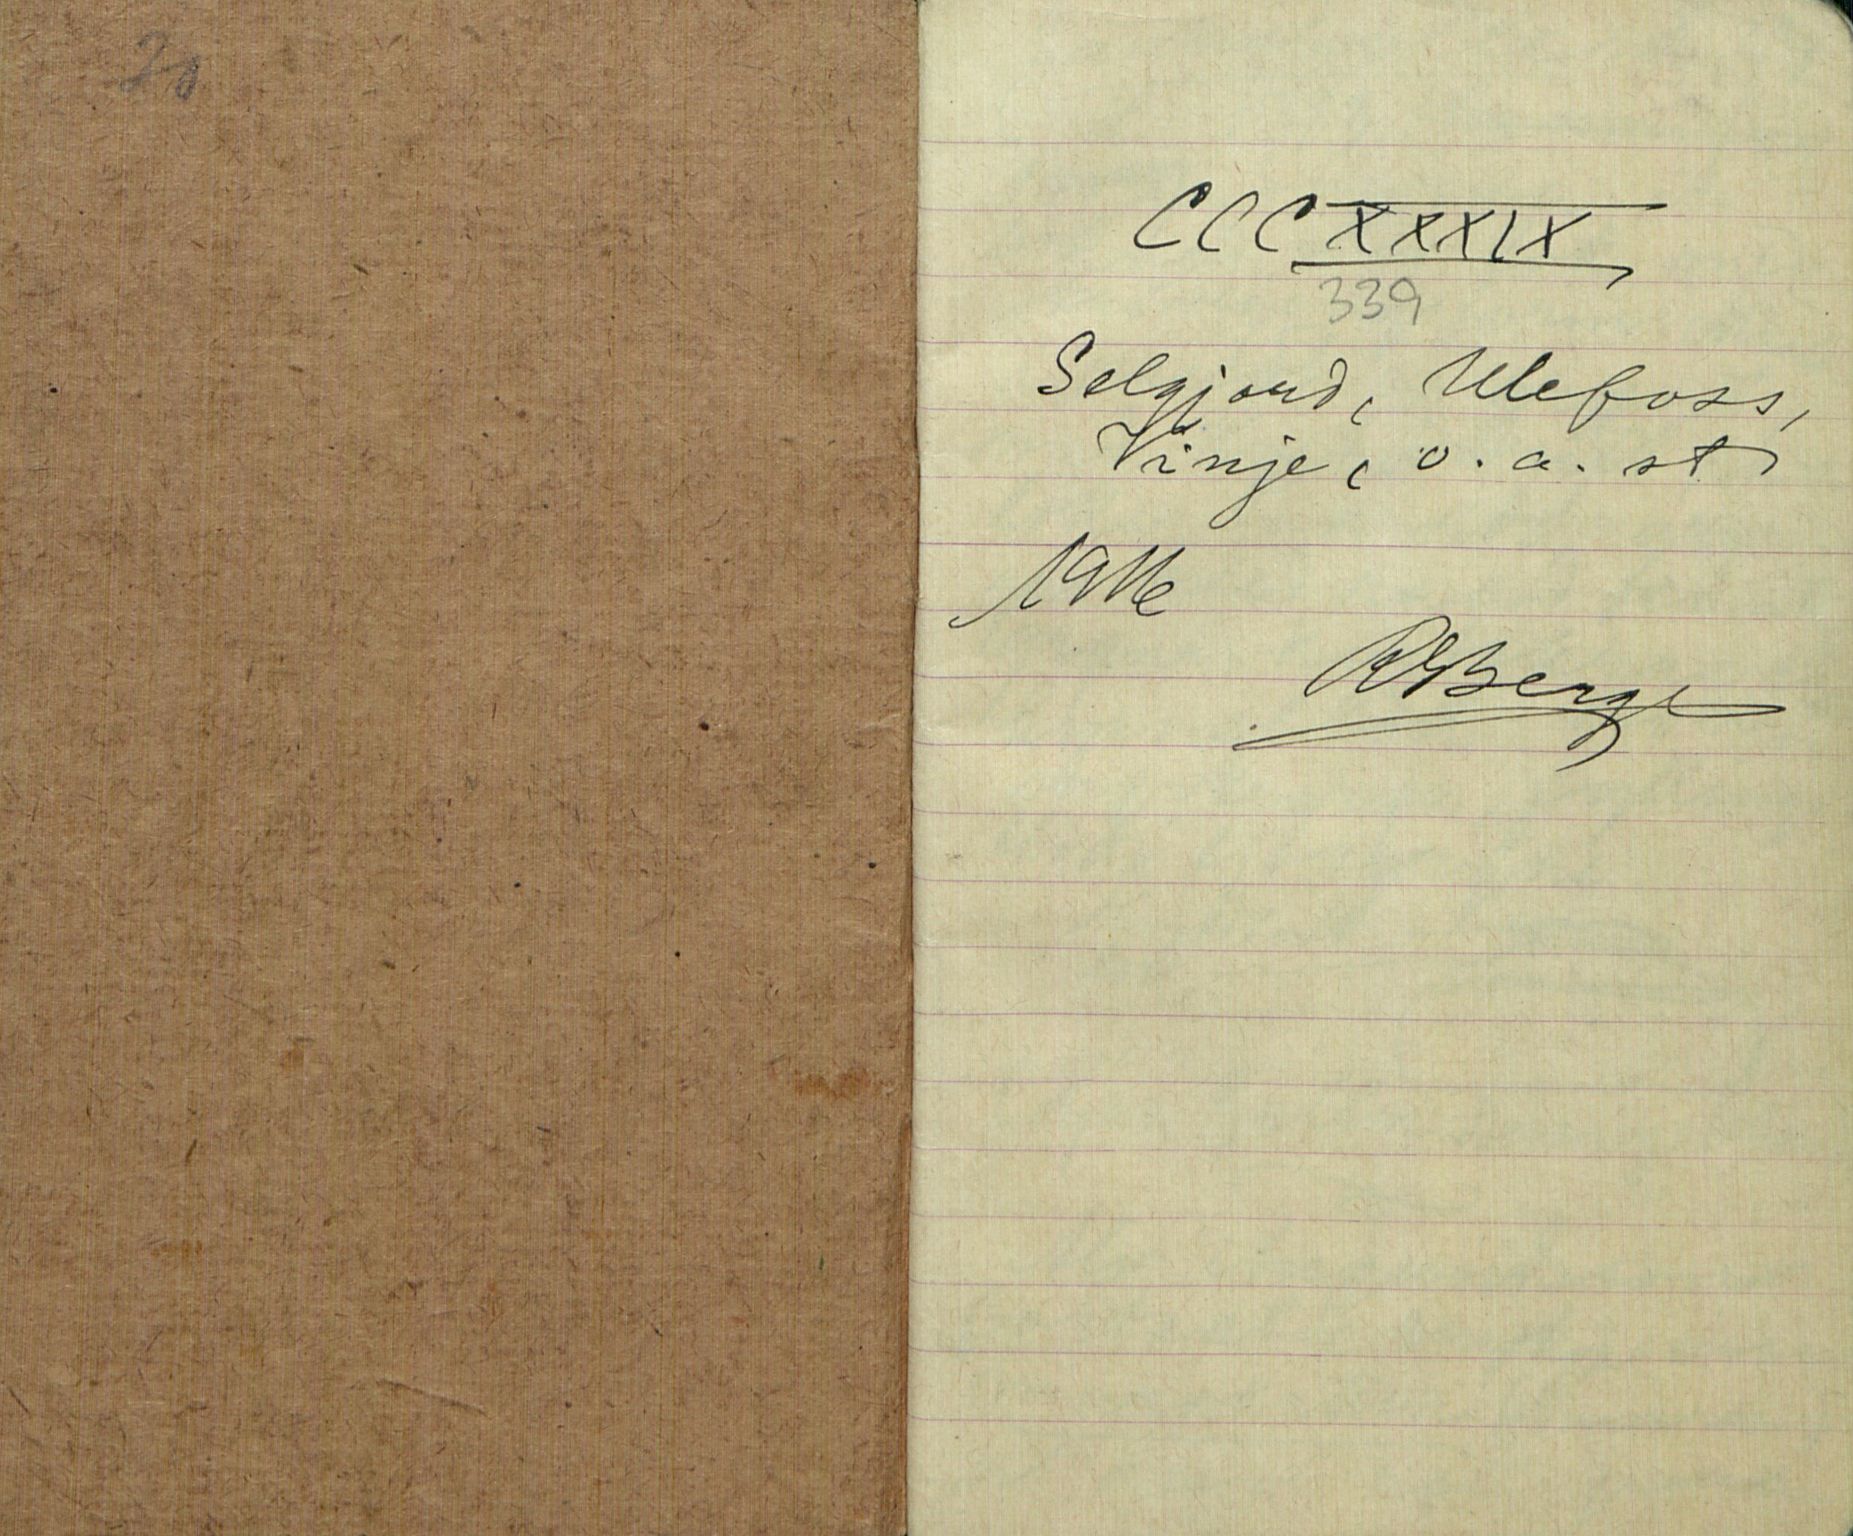 20
CCCXXXIX
339
Selgjord, Ulefoss,
Vinje, o. a. st
1916
RBerge